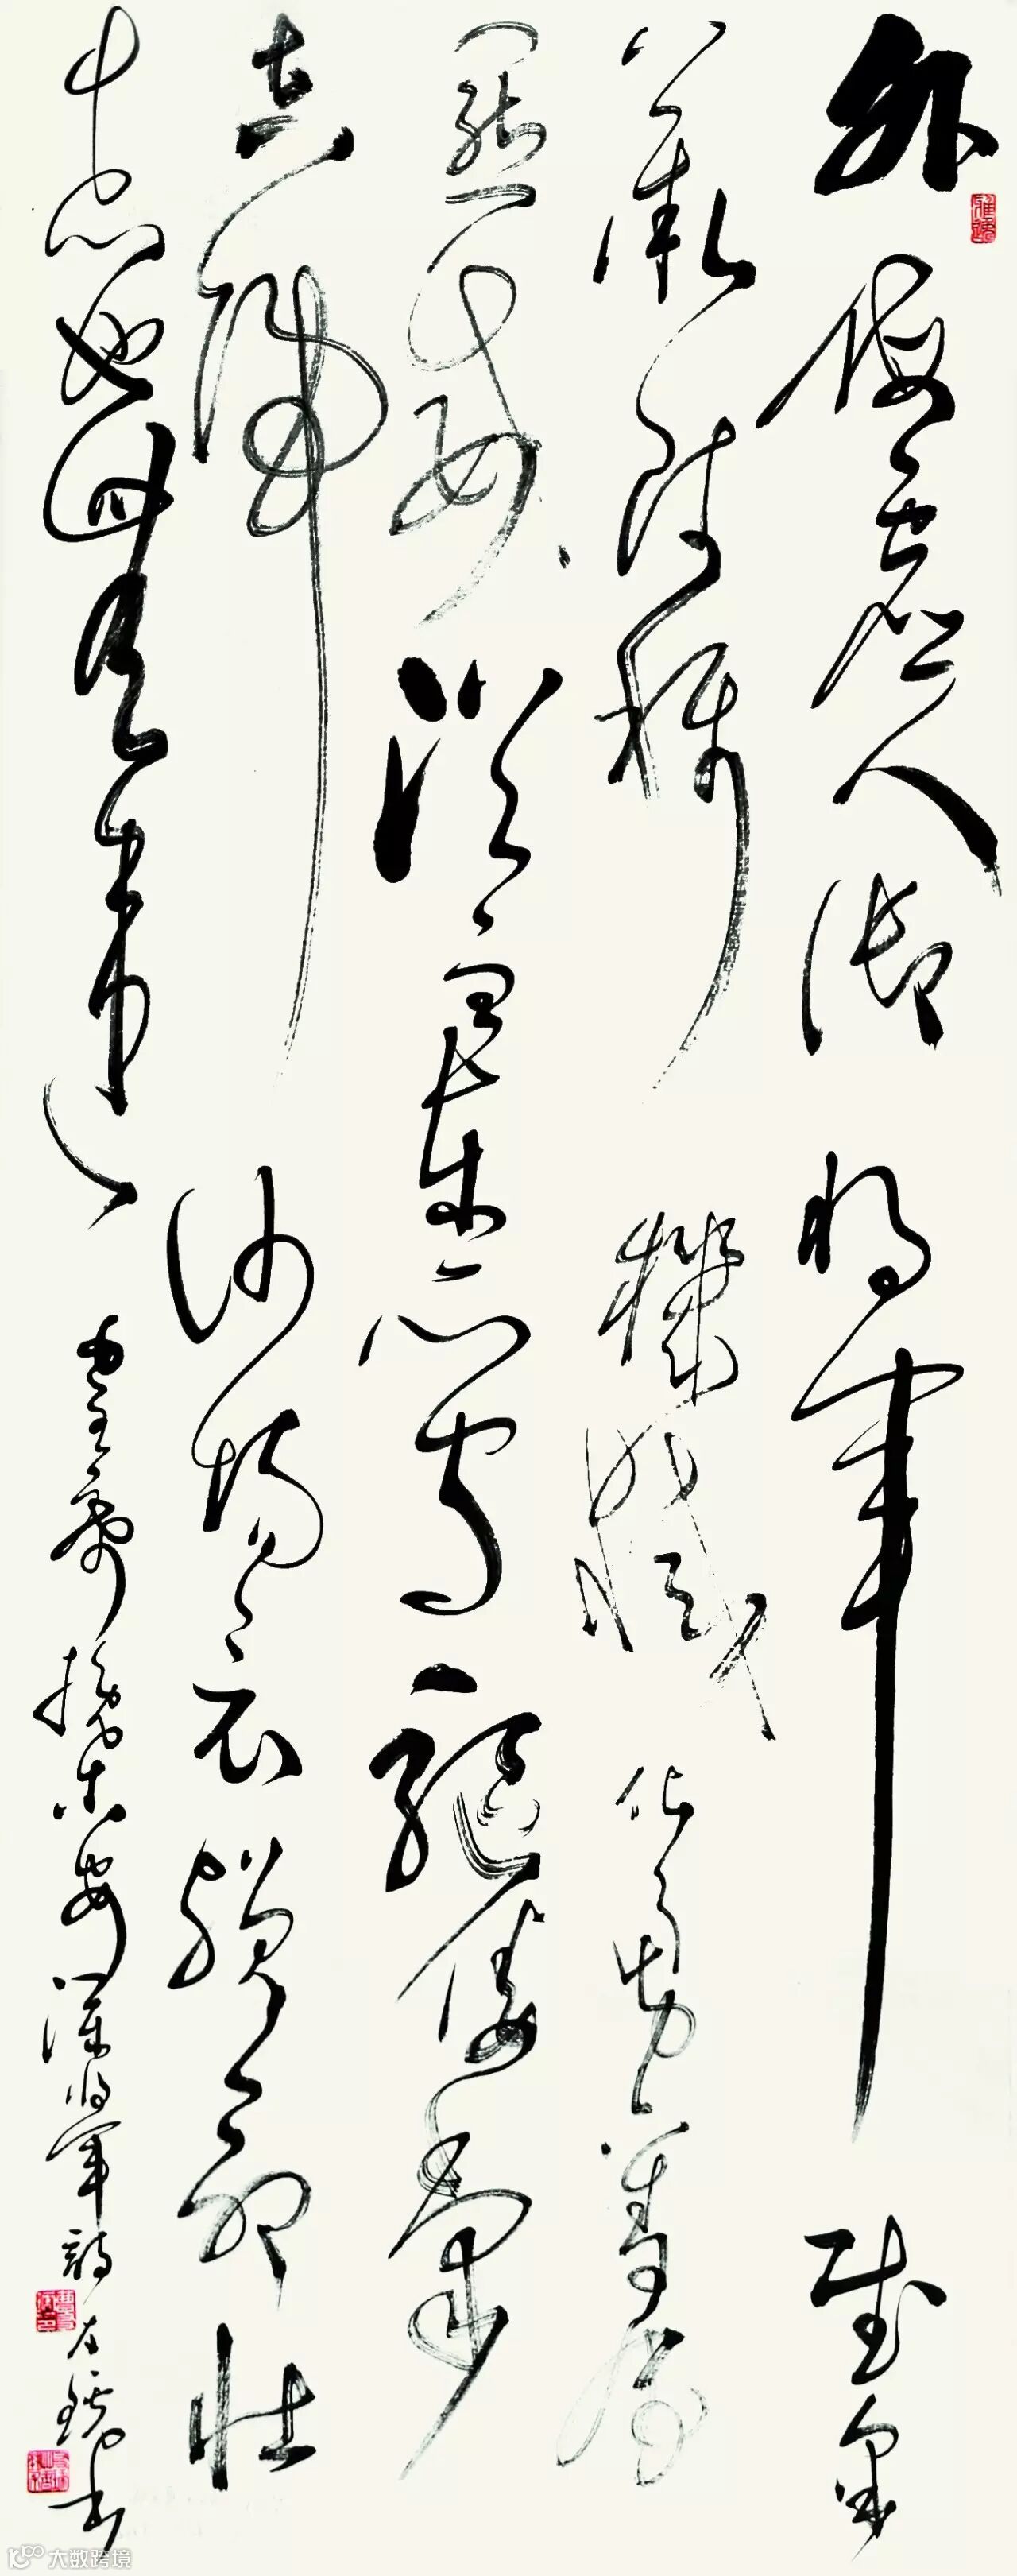 外侮需人御将军赋采
薇师称机械化勇夺虎
罴威浴血东瓜守驱倭棠
吉归沙场竟殒命壮
志也无违毛主席挽戴安澜将军诗 书
大数跨境